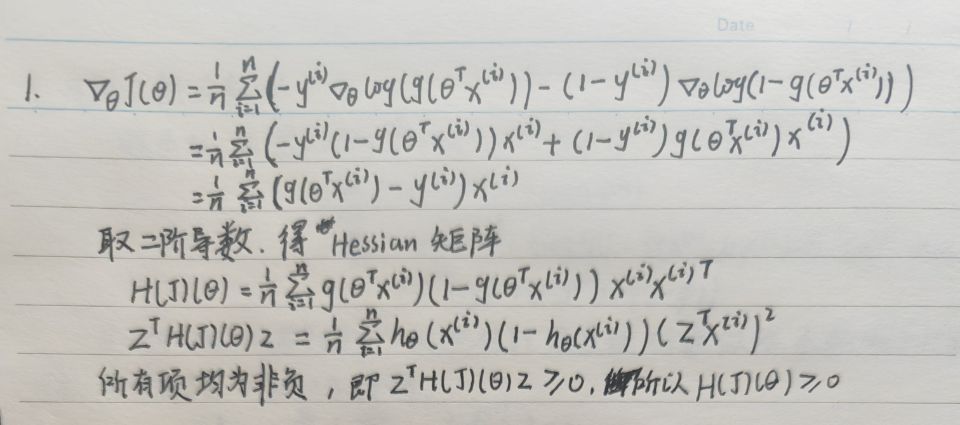 Date / /
1. ∇θJ(θ) = 1/n ∑_{i=1}^{n} (-y^{(i)} ∇θ log(g(θ^T x^{(i)})) - (1-y^{(i)}) ∇θ log(1-g(θ^T x^{(i)})))
= 1/n ∑_{i=1}^{n} (-y^{(i)}(1-g(θ^T x^{(i)})) x^{(i)} + (1-y^{(i)}) g(θ^T x^{(i)}) x^{(i)})
= 1/n ∑_{i=1}^{n} (g(θ^T x^{(i)}) - y^{(i)}) x^{(i)}
取二阶导数. 得 Hessian 矩阵
H(J)(θ) = 1/n ∑_{i=1}^{n} g(θ^T x^{(i)})(1-g(θ^T x^{(i)})) x^{(i)} x^{(i)T}
Z^T H(J)(θ) z = 1/n ∑_{i=1}^{n} hθ(x^{(i)})(1-hθ(x^{(i)}))(Z^T x^{(i)})^2
所有项均为非负, 即 Z^T H(J)(θ) Z ≥ 0, 所以 H(J)(θ) ≥ 0